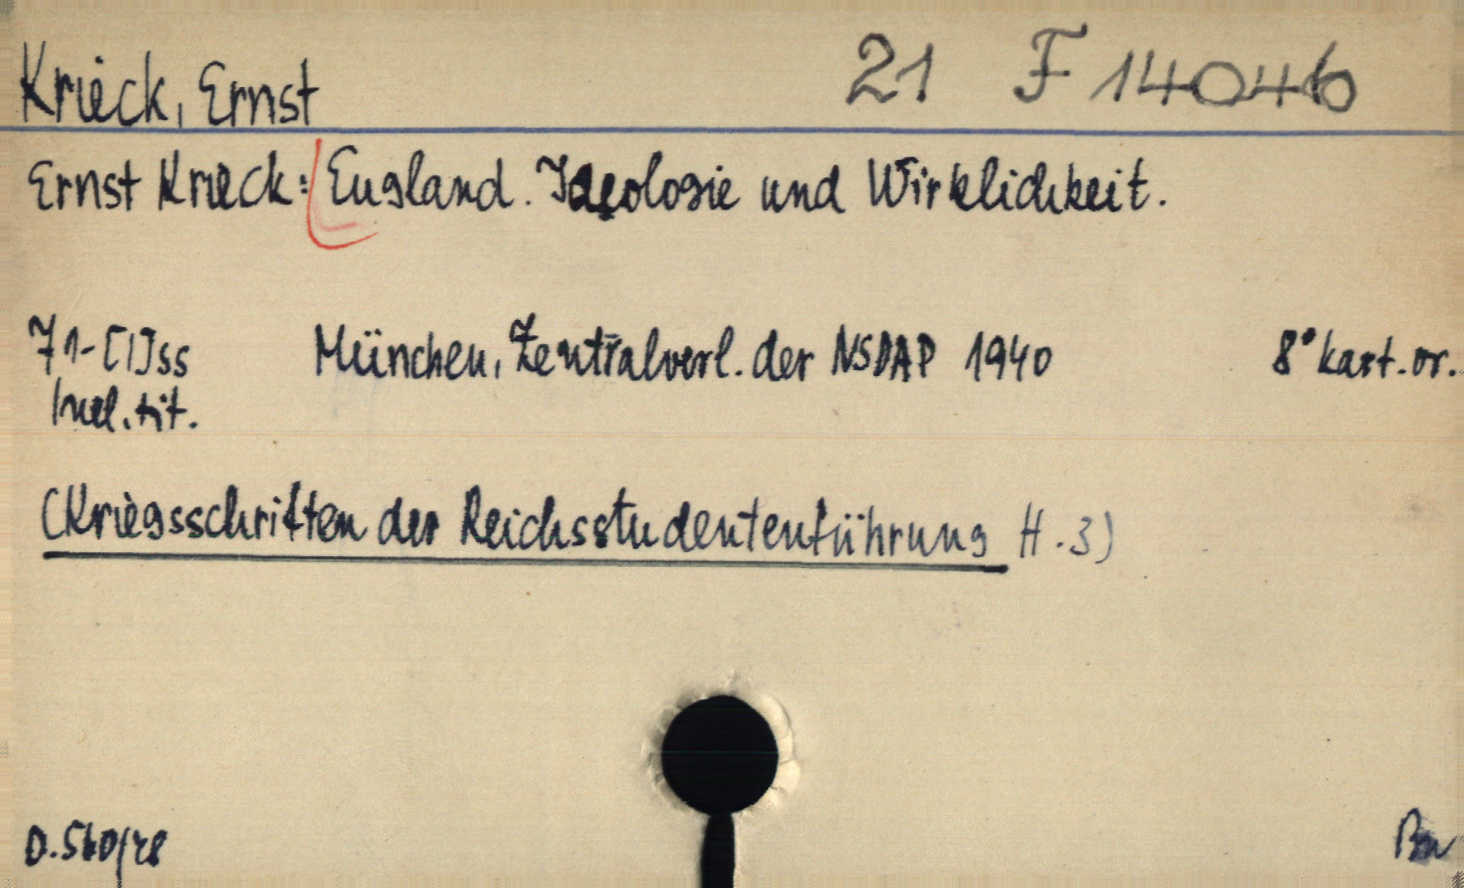 Krieck, Ernst 21 F 14046
Ernst Krieck: England. Ideologie und Wirklichkeit.
71-[1]ss München, Zentralverl. der NSDAP 1940 8° kart. or.
Incl. tit.
(Kriegsschriften der Reichsstudentenführung H. 3)